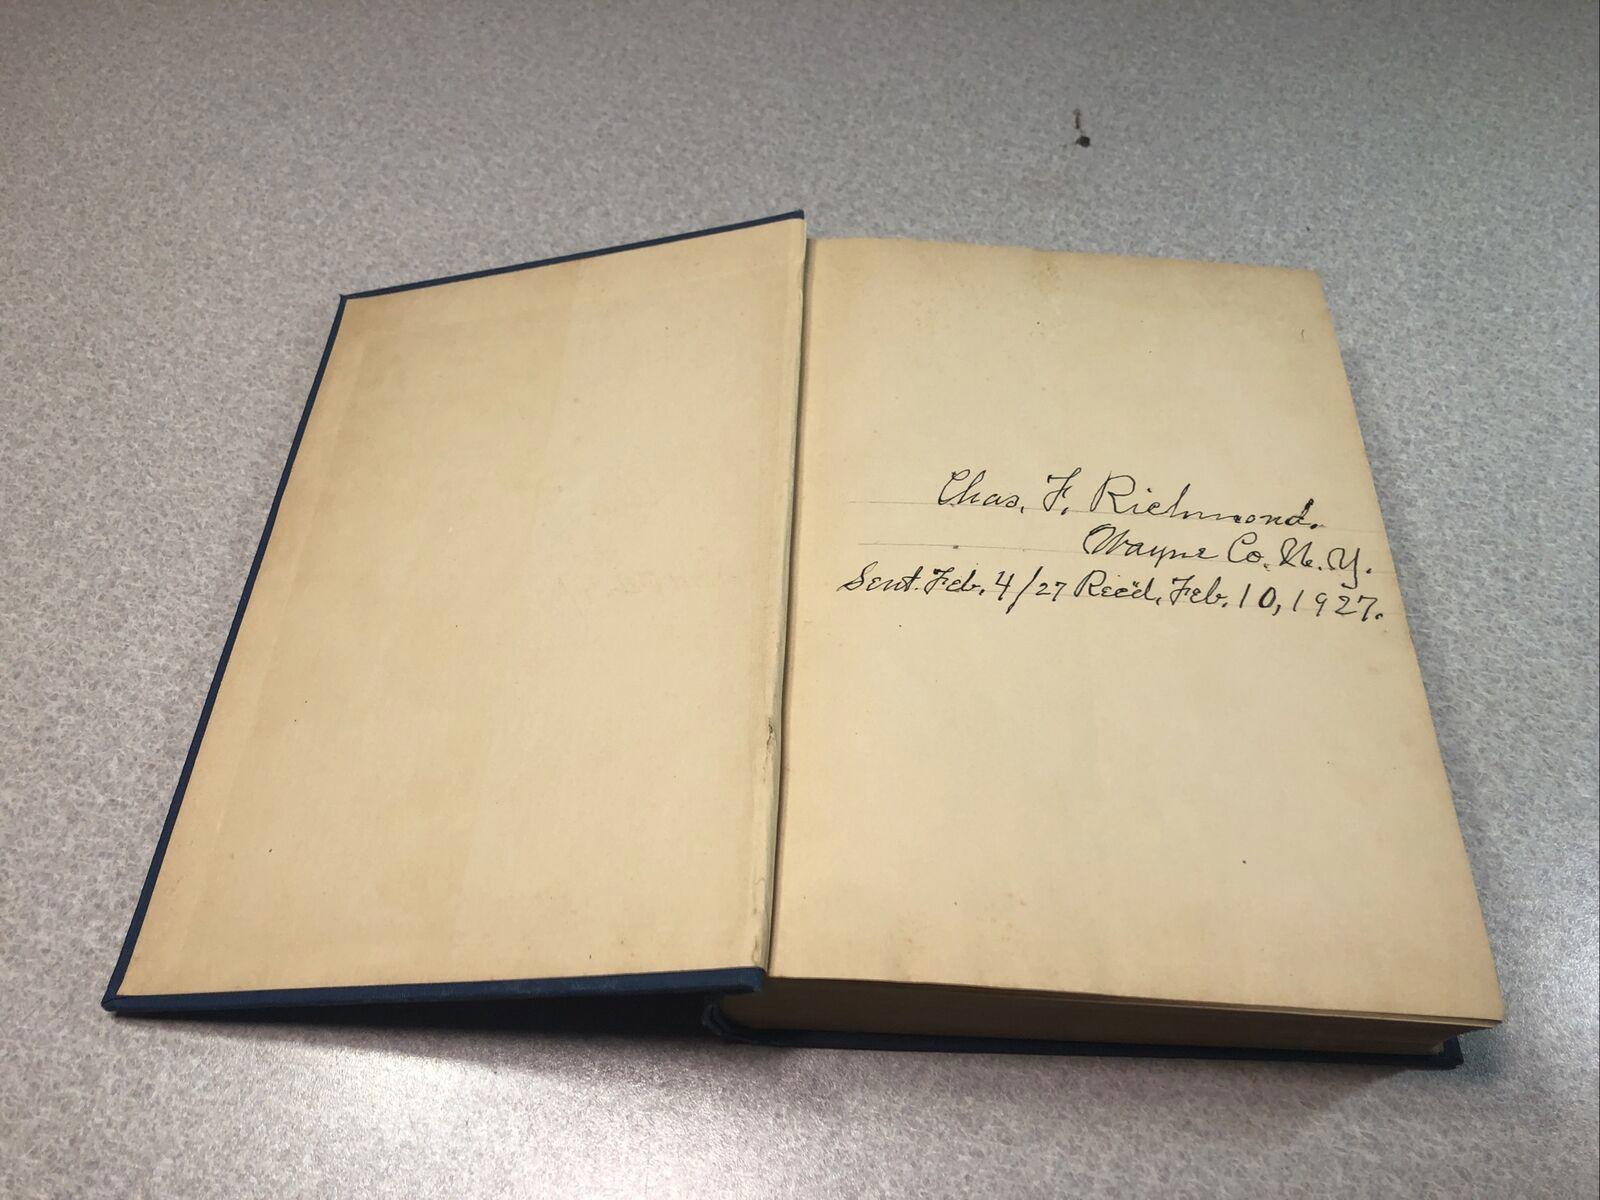 Chas. F. Richmond.
Wayne Co. N. Y.
Sent. Feb. 4/27 Rec'd. Feb. 10, 1927.